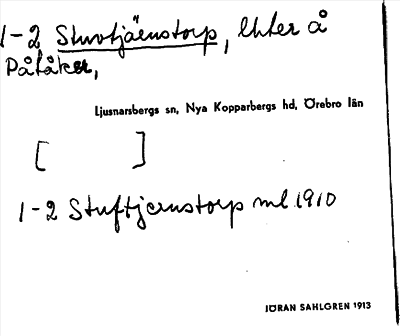 1-2 Stuvtjäenstorp, lhter å
Påtåker,
Ljusnarsbergs sn, Nya Kopparbergs hd, Örebro län
[ ]
1-2 Stuftjernstorp ml 1910
JÖRAN SAHLGREN 1913